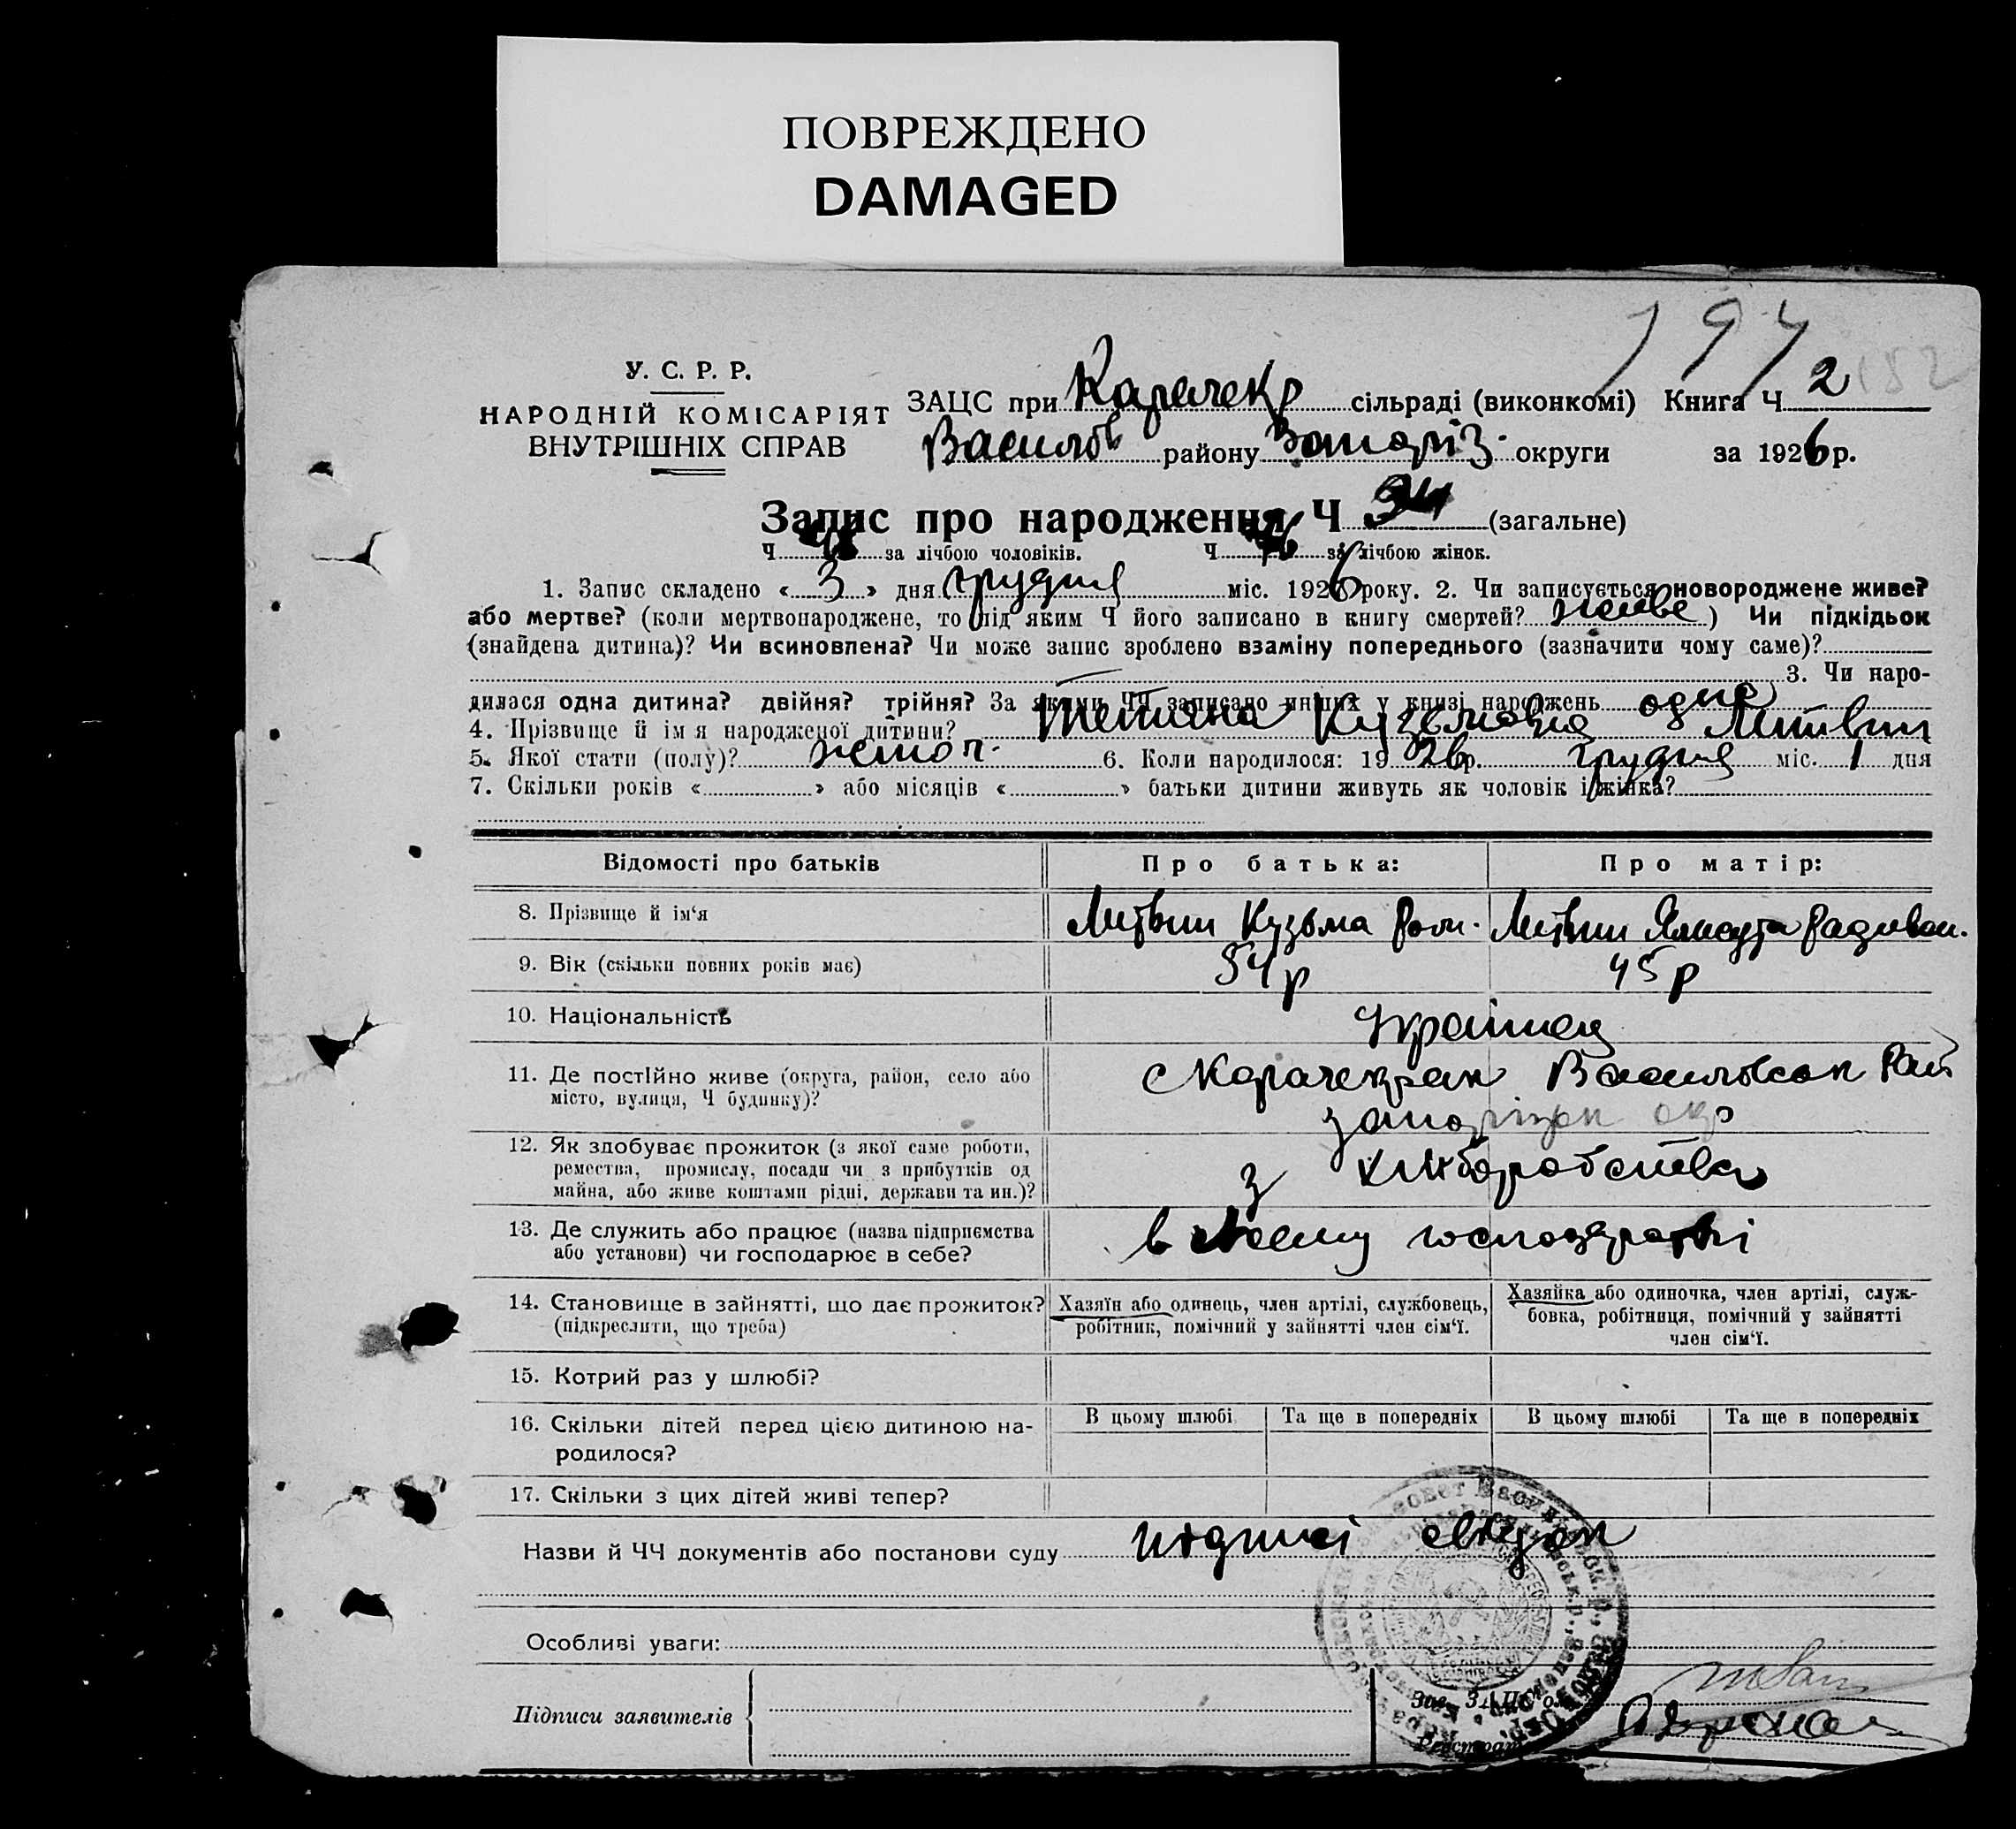 ПОВРЕЖДЕНО
DAMAGED
194
2 152
У. С. Р. Р.
НАРОДНІЙ КОМІСАРІЯТ
ВНУТРІШНІХ СПРАВ
ЗАЦС при Карачекр сільраді (виконкомі) Книга Ч
Василів району Запоріз. округи за 1926 р.
Запис про народження Ч 94 (загальне)
Ч за лічбою чоловіків. Ч за лічбою жінок.
1. Запис складено « 3 » дня грудня міс. 1926 року. 2. Чи записується новороджене живе?
або мертве? (коли мертвонароджене, то під яким Ч його записано в книгу смертей? живе ) Чи підкідьок
(знайдена дитина)? Чи всиновлена? Чи може запис зроблено взаміну попереднього (зазначити чому саме)?
3. Чи наро-
дилася одна дитина? двійня? трійня? За якими ЧЧ записано инших у книзі народжень одна
4. Прізвище й ім я народженої дитини? Тетяна Кузьмовна Литвин
5. Якої стати (полу)? жіноч. 6. Коли народилося: 1926р. грудня міс. 1 дня
7. Скільки років « » або місяців « » батьки дитини живуть як чоловік і жінка?
Відомості про батьків Про батька: Про матір:
8. Прізвище й ім‘я Литвин Кузьма Ром. Литвин
9. Вік (скільки повних років має) 54 р 45 р
10. Національність Україн
11. Де постійно живе (округа, район, село або
місто, вулиця, Ч будинку)?
с Карачекрак Василівськ Рай
запорізьк окр
12. Як здобуває прожиток (з якої саме роботи,
ремества, промислу, посади чи з прибутків од
майна, або живе коштами рідні, держави та ин.)?
з хліборобства
13. Де служить або працює (назва підприємства
або установи) чи господарює в себе?
в своєму господарстві
14. Становище в зайнятті, що дає прожиток?
(підкреслити, що треба)
Хазяїн або одинець, член артілі, службовець,
робітник, помічний у зайнятті член сім‘ї.
Хазяйка або одиночка, член артілі, служ-
бовка, робітниця, помічний у зайнятті
член сім‘ї.
15. Котрий раз у шлюбі?
16. Скільки дітей перед цією дитиною на-
родилося?
В цьому шлюбі Та ще в попередніх В цьому шлюбі Та ще в попередніх
17. Скільки з цих дітей живі тепер?
Назви й ЧЧ документів або постанови суду підписі свідок
Особливі уваги:
Підписи заявителів
Зав. ЗАЦС'ом
Реєстратор